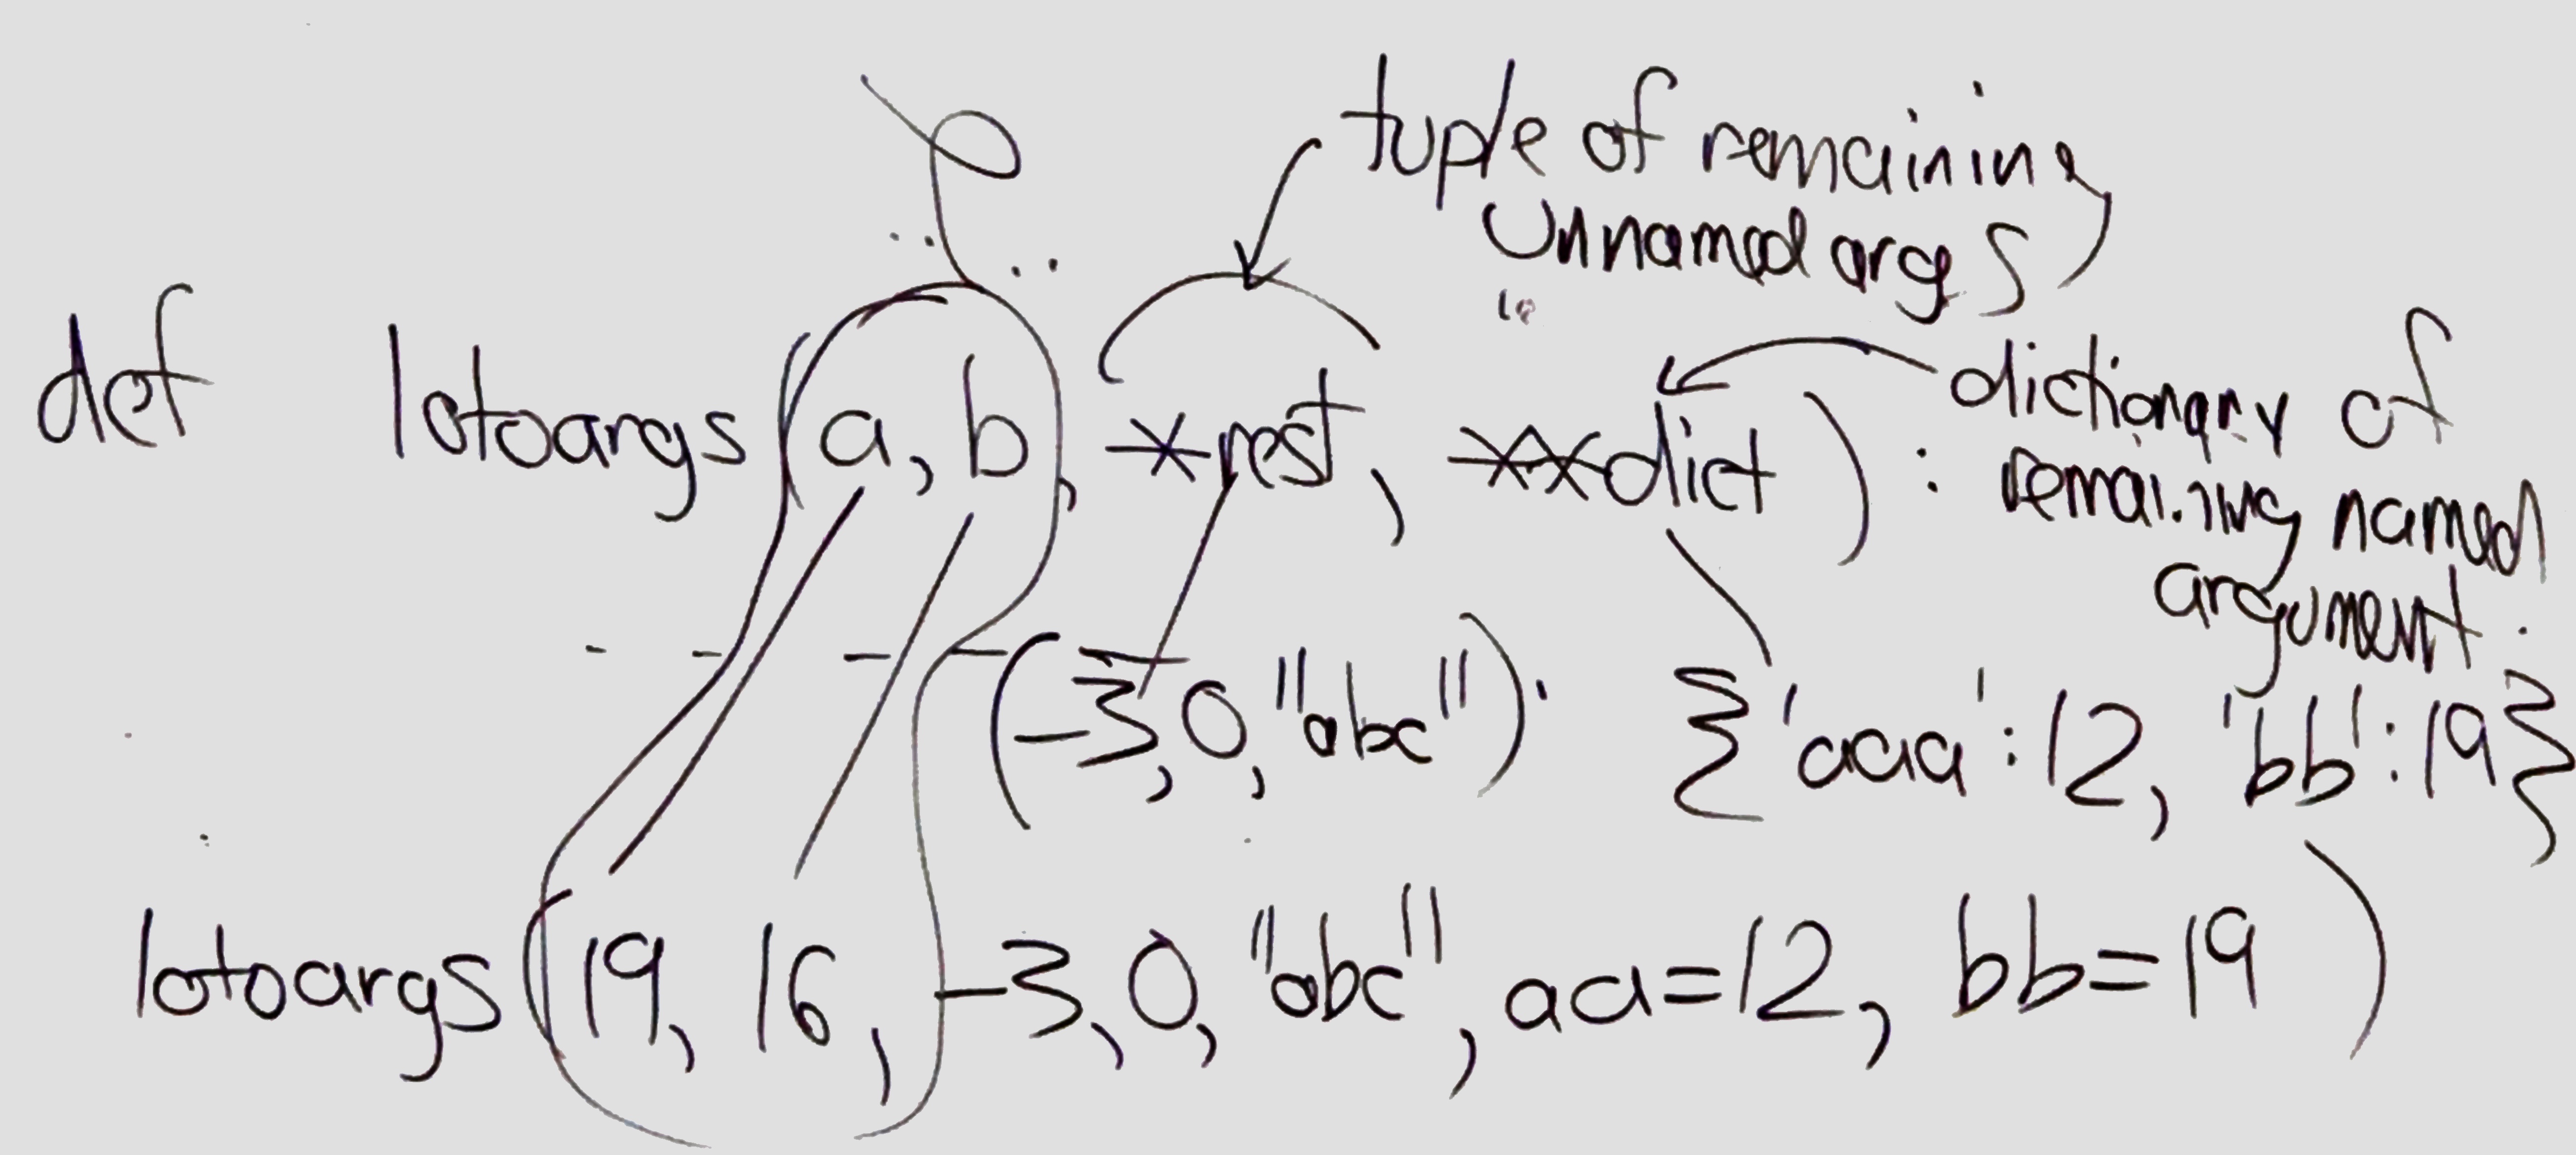 tuple of remaining
unnamed args
def lotoargs(a, b, *rest, **dict):
dictionary of
remaining named
argument.
(-3, 0, "abc")
{'aaa':12, 'bb':19}
lotoargs(19, 16, -3, 0, "abc", aa=12, bb=19)